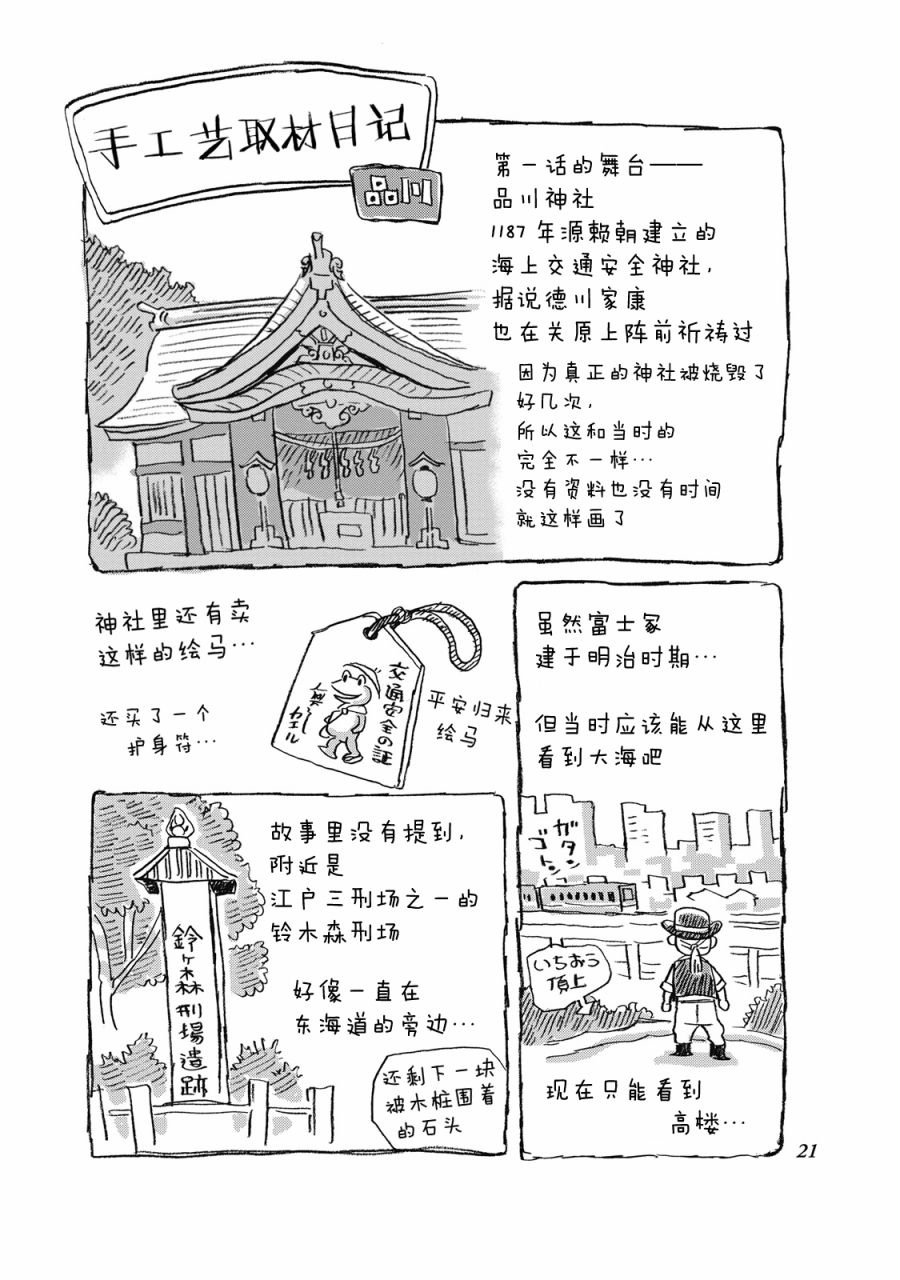 手工艺取材日记
品川
第一话的舞台——
品川神社
1187年源赖朝建立的
海上交通安全神社,
据说德川家康
也在关原上阵前祈祷过
因为真正的神社被烧毁了
好几次,
所以这和当时的
完全不一样…
没有资料也没有时间
就这样画了
神社里还有卖
这样的绘马…
还买了一个
护身符…
交通安全の証
カエル
平安归来
绘马
虽然富士冢
建于明治时期…
但当时应该能从这里
看到大海吧
ガタン
ゴトン
いちおう
頂上
现在只能看到
高楼…
故事里没有提到,
附近是
江户三刑场之一的
铃木森刑场
好像一直在
东海道的旁边…
还剩下一块
被木桩围着
的石头
鈴ヶ森刑場遺跡
21